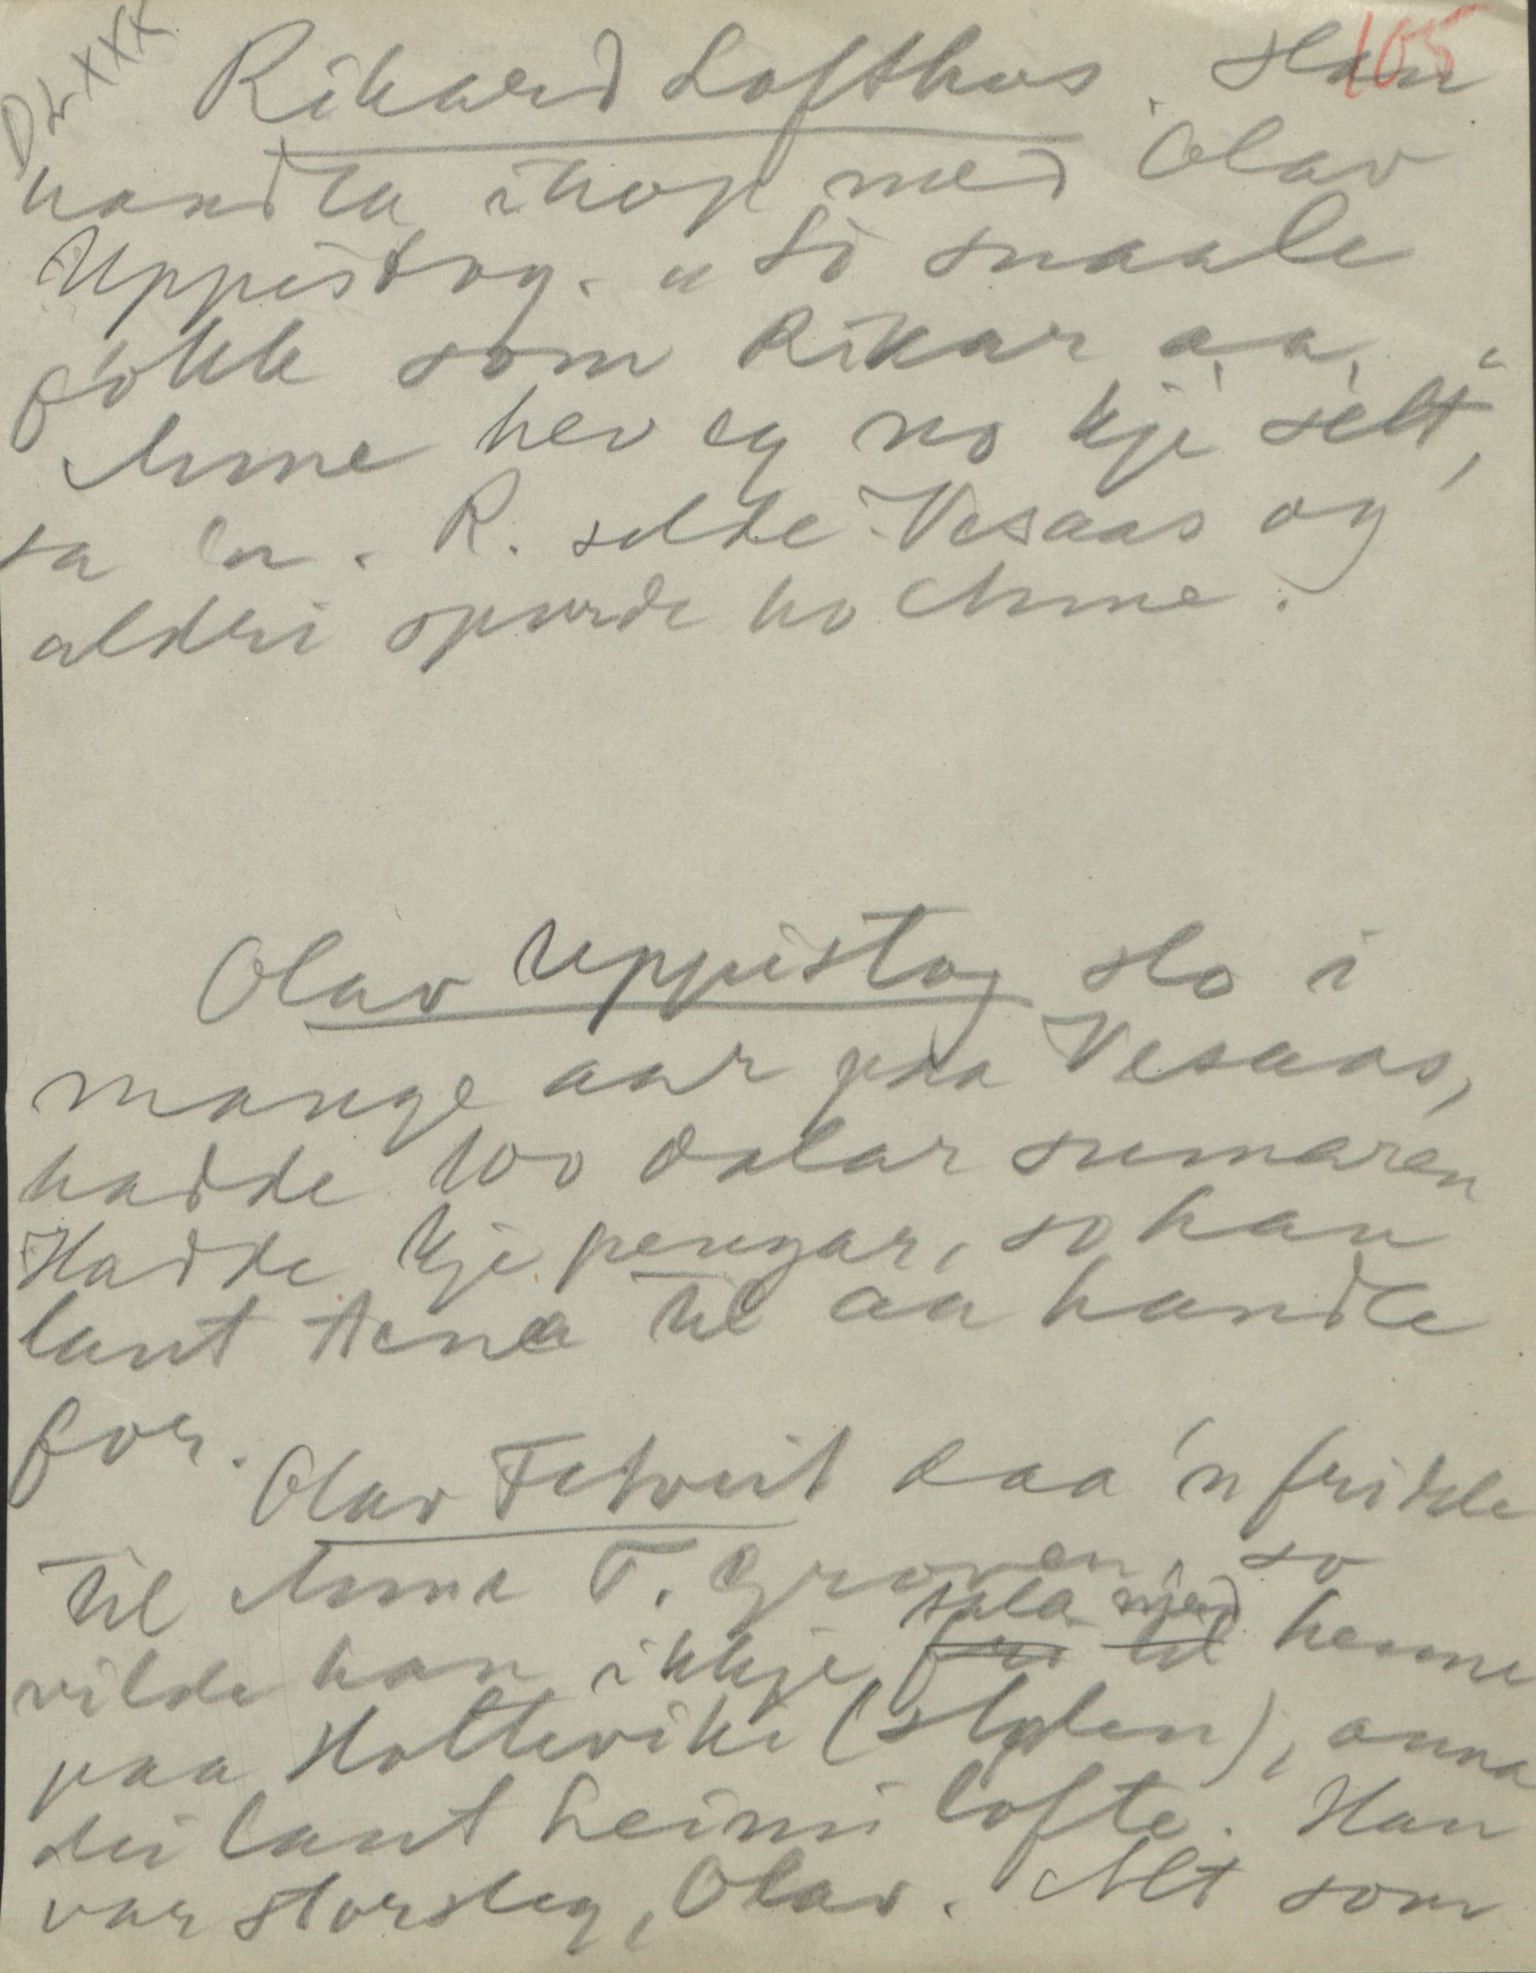 DLXXX
105
Rikard Lofthus. Han
handla ihop med Olav
Uppistog. "So snaale
fókk som Rikar aa
Anne hev eg no kje sett",
sa en. R. selde Vesaas og
aldri spurde ho Anne.
Olav Uppistog slo i
mange aar paa Vesaas,
hadde 100 dalar sumaren
Hadde kje pengar, so han
laut tena til aa handle
for.
Olav Fetveit daa 'n fridde
til Anne T. Groven, so
tala med
vilde han ikkje fri til henne
paa Holteviki (stylen), anna
dei laut heim i lofte. Han
var storsleg, Olav. Alt som